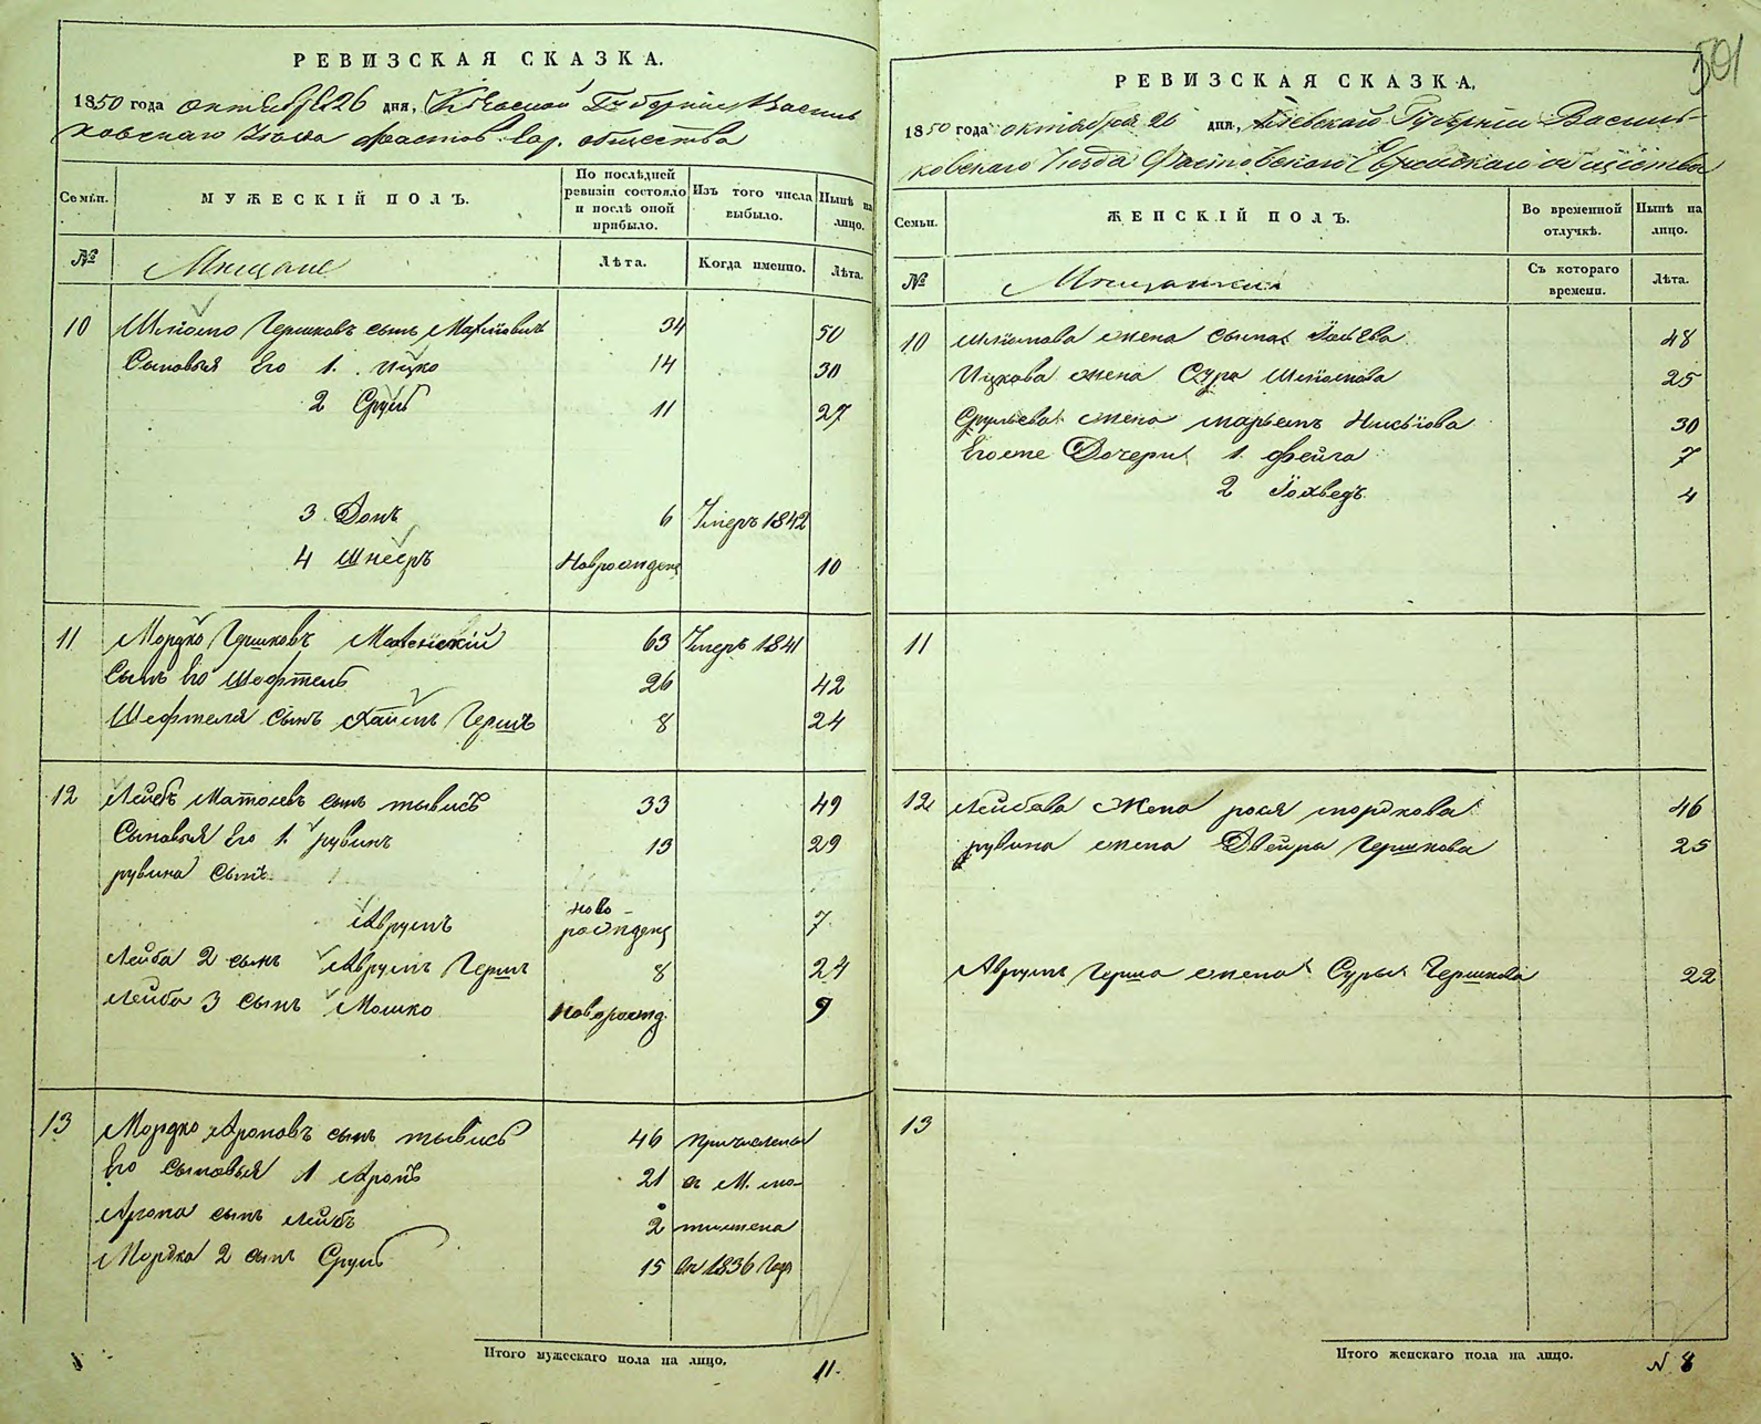 РЕВИЗСКАЯ СКАЗКА.
1850 года октября 26 дня, Кіевской Губерніи Василь
ковскаго Уезда Фастов. Евр. общества
Семьи. МУЖЕСКІЙ ПОЛЪ. По послѣдней ревизіи состояло и послѣ оной прибыло. Изъ того числа выбыло. Нынѣ на лицо.
№ Мещане Лѣта. Когда именно. Лѣта.
10 Шліомо Гершковъ сынъ 34 50
Сыновья Его 1. Ицко 14 30
2 Сруль 11 27
3 Донъ 6 Умеръ 1842
4 Шнееръ Новорожденъ 10
11 Мордко Гершковъ 63 Умеръ 1841
Сынъ Его Шефтель 26 42
Шефтеля сынъ Хаимъ Гершъ 8 24
12 Лейбъ сынъ 33 49
Сыновья Его 1. рувинъ 13 29
рувина сынъ
Аврумъ ново-
рожденъ 7
Лейба 2 сынъ Аврумъ Гершъ 8 24
Лейба 3 сынъ Мошко Новорожд. 9
13 Мордко Ароновъ сынъ 46 причислены
Его сыновья 1 Аронъ 21
Арона сынъ Лейбъ 2
Мордка 2 сынъ Сруль 15 въ 1836 году
Итого мужескаго пола на лицо. 11.
501
РЕВИЗСКАЯ СКАЗКА.
1850 года октября 26 дня, Кіевской Губерніи Василь-
ковскаго Уезда Фастовскаго Еврейскаго общества
Семьи. ЖЕНСКІЙ ПОЛЪ. Во временной отлучкѣ. Нынѣ на лицо.
№ Мещанки Съ котораго времени. Лѣта.
10 Шліомова жена 48
Ицкова жена Сура Шліомова 25
Срульева жена марьемъ 30
Его же Дочери 1. фейга 7
2 Іохведъ 4
11
12 Лейбова Жена рося мордкова 46
рувина жена Двейра Гершкова 25
Аврумъ Герша жена Сура Гершкова 22
13
Итого женскаго пола на лицо. № 8